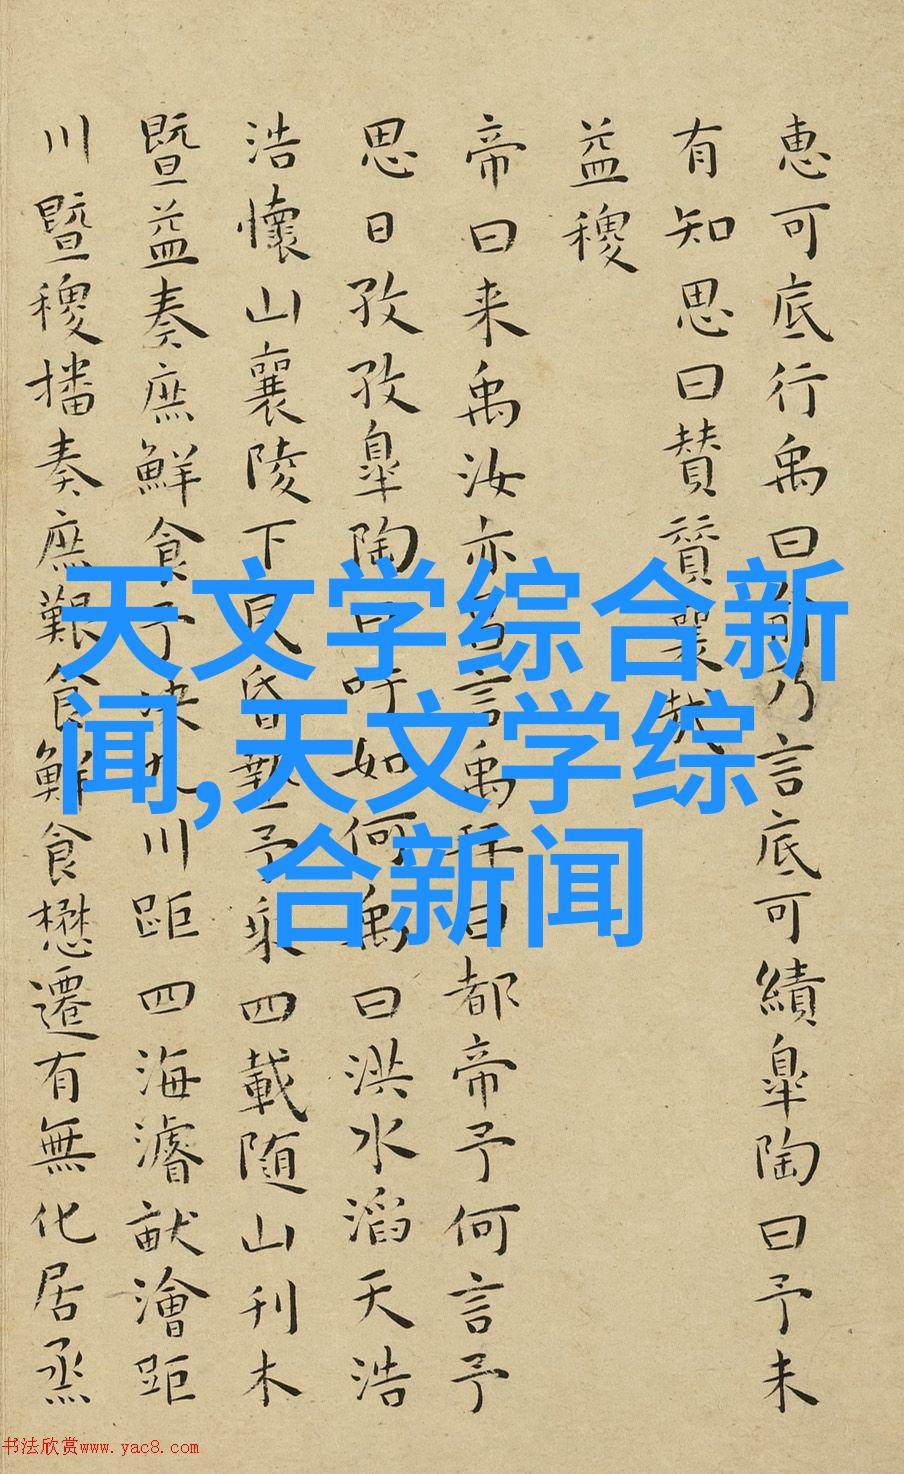 惠可底行禹曰俞乃言底可績臯陶曰予未
有知思曰賛賛襄哉
益稷
帝曰来禹汝亦昌言禹拜曰都帝予何言予
思日孜孜臯陶曰吁如何禹曰洪水滔天浩
浩懷山襄陵下民昏墊予乘四載随山刊木
暨益奏庶鮮食予决九川距四海濬畎澮距
川暨稷播奏庶艱食鮮食懋遷有無化居烝
天文学综合新
闻,天文学综
合新闻
书法欣赏www.yac8.com